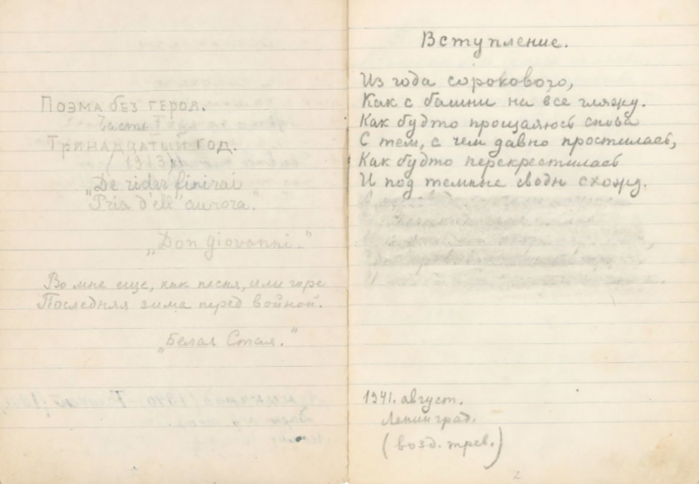 Поэма без героя.
Часть I
Тринадцатый год.
(1913)
"De rider finirai
Pria dell' aurora.
"Don Giovanni."
Во мне еще, как песня, или горе
Последняя зима перед войной.
"Белая Стая."
Вступление.
Из года сорокового,
Как с башни на все гляжу.
Как будто прощаюсь снова
С тем, с чем давно простилась,
Как будто перекрестилась
И под темные своды схожу.
1941. август.
Ленинград.
(возд. трев.)
2